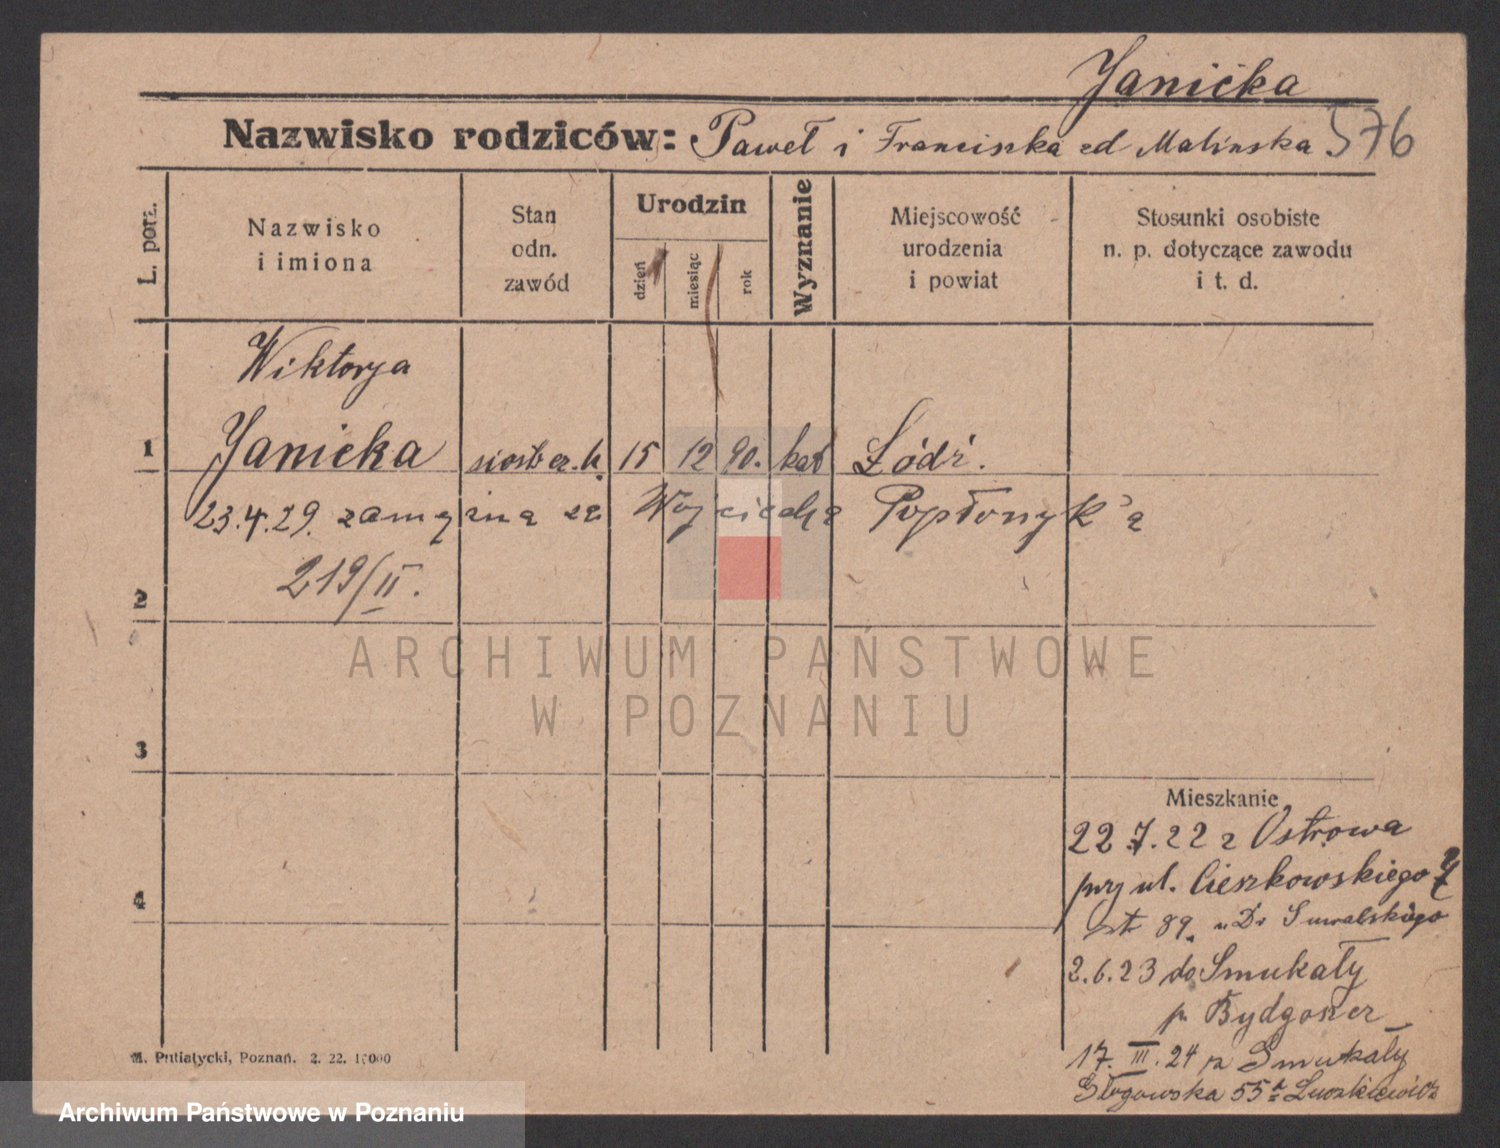 Janicka
Nazwisko rodziców: Paweł i Franciszka zd Malinska 576
L. porz.
Nazwisko
i imiona
Stan
odn.
zawód
Urodzin
dzień
miesiąc
rok
Wyznanie
Miejscowość
urodzenia
i powiat
Stosunki osobiste
n. p. dotyczące zawodu
i t. d.
Wiktorja
1 Janicka 15 12 90. kat Łódź.
23.4.29. zamężna za Wojciecha Popłonyk'a
219/II.
2
3
4
Mieszkanie
22.7.22 z Ostrowa
przy ul. Cieszkowskiego 7
89. u Dr Suwalskiego
2.6.23 do Smukały
p. Bydgoszcz
17.III.24 z Smukały
Głogowska 55
M. Putiatycki, Poznań. 2. 22.
ARCHIWUM PAŃSTWOWE
W POZNANIU
Archiwum Państwowe w Poznaniu